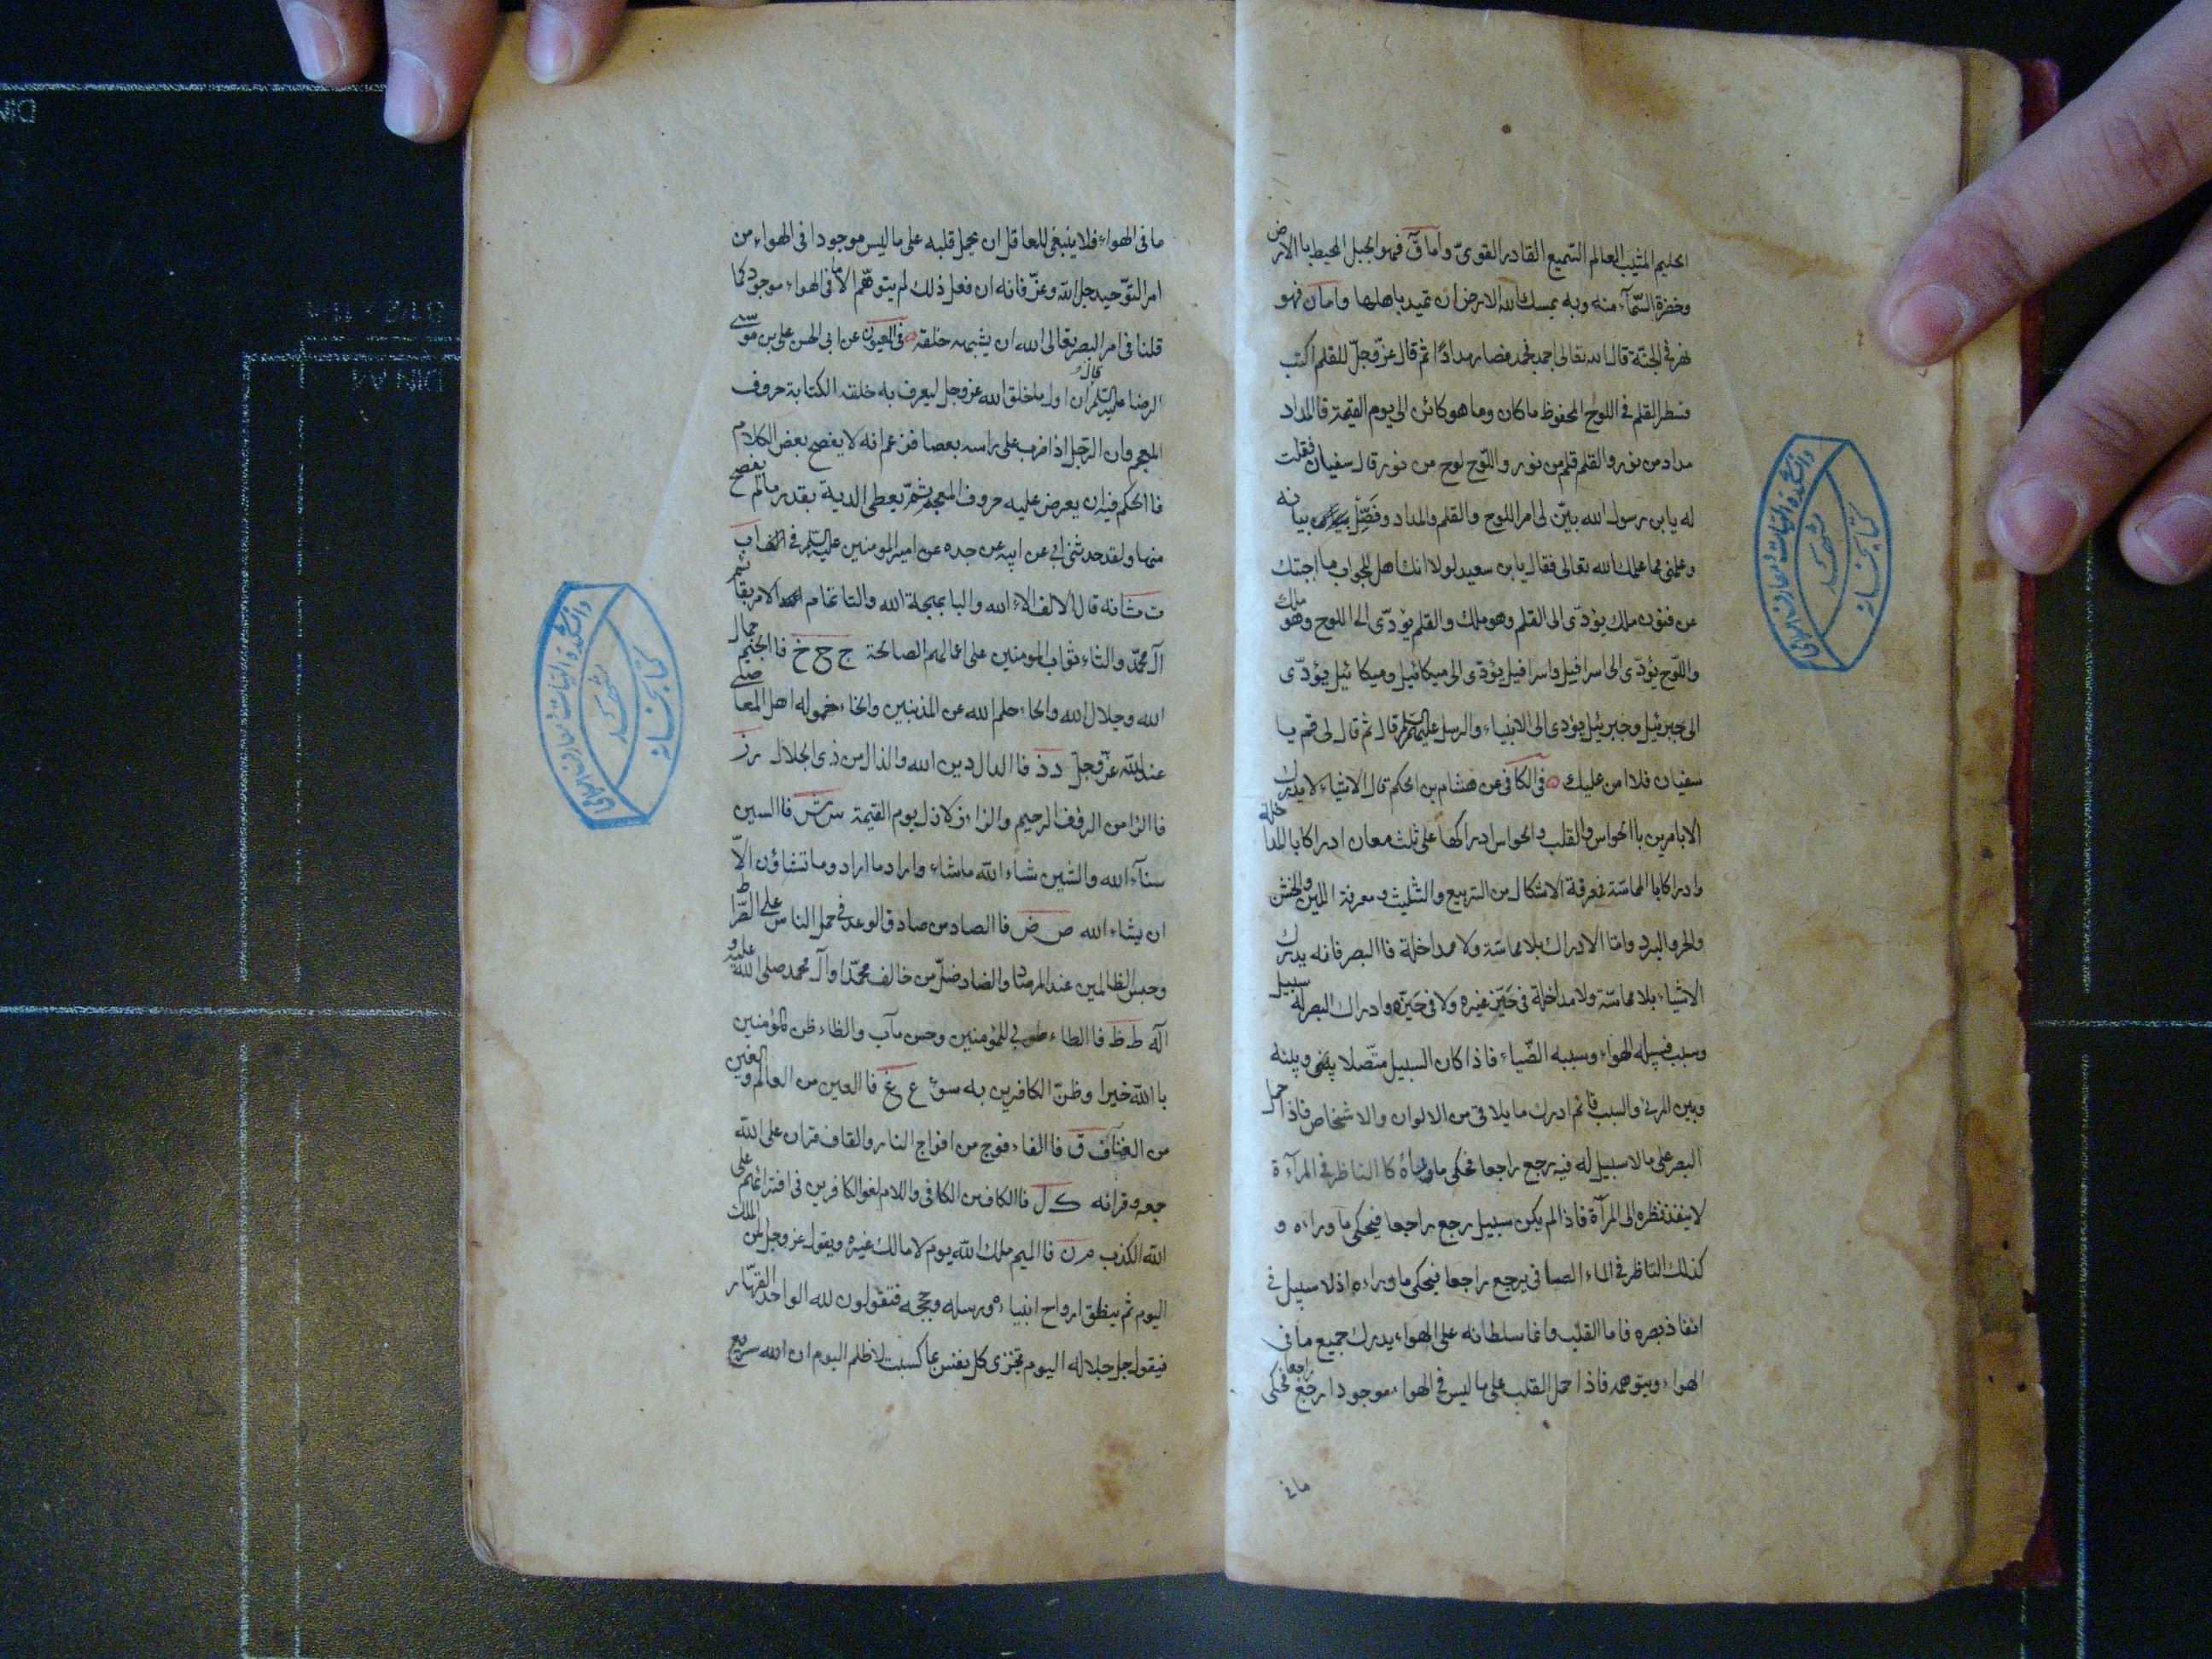 الحليم المثيب العالم السّميع القادر القوىّ وأما قۤ فهو الجبل المحيط باالارض
وخضرة السّمآء منه وبه يمسك الله الارض ان تميد باهلها واما ن فهو
نهر فى الجنّة قال الله تعالى اجمد فجمد فصار مدادًا ثمّ قال عزّ وجلّ للقلم اكتب
فسطر القلم فى اللوح المحفوظ ما كان وما هو كائن الى يوم القيمة فالمداد
مداد من نور والقلم قلم من نور واللّوح لوح من نور قال سفيان فقلت
له يا بن رسول الله بيّن لى امر اللوح والقلم والمداد وفَضِّل بيانه
وعلمنى مما علمك الله تعالى فقال يا بن سعيد لولا انك اهل للجواب ما اجبتك
عن فنون ملك يؤدّى الى القلم وهو ملك والقلم يؤدّى الى اللوح وهو ملك
واللّوح يؤدّى الى اسرافيل واسرافيل يؤدّى الى ميكائيل وميكائيل يؤدّى
الى جبرئيل وجبرئيل يؤدى الى الانبياء والرسل عليهم السّلم قال ثم قال لى قم يا
سفيان فلا امن عليك فى الكافى عن هشام بن الحكم قال الاشياء لا يدرك
الا بامرين باالحواس والقلب والحواس ادراكها على ثلث معان ادراكا بالمداخلة
وادراكا باالمماسّة فمعرفة الاشكال من التربيع والتثليث ومعرفة اللين والخشن
والحر والبرد وامّا الادراك بلا مماسّة ولا مداخلة فاالبصر فانه يدرك
الاشياء بلا مماسّة ولا مداخلة فى حَيّز غيره ولا فى حَيّزه وادراك البصر له سبيل
وسبب فسبيله الهواء وسببه الضّياء فاذا كان السبيل متّصلا بينه
وبين المرئى والسبب قائم ادرك ما يلاقى من الالوان والاشخاص فاذا حمل
البصر على ما لا سبيل له فيه رجع راجعا فحكى ما وراءه كا الناظر فى المرآة
لا ينفذ نظره الى المرآة فاذا لم يكن سبيل رجع راجعا فيحكى ما وراءه و
كذلك الناظر فى الماء الصافى يرجع راجعا فيحكى ما وراءه اذ لا سبيل فى
انفاذ بصره فاما القلب وانما سلطانه على الهواء يدرك جميع ما فى
الهواء ويتوهمه فاذا حمل القلب على ما ليس فى الهواء موجودا رجع راجعا فحكى
ما فى
ما فى الهواء فلا ينبغى للعاقل ان يحمل قلبه على ما ليس موجودا فى الهواء من
امر التوّحيد جلّ الله وعزّ فانه ان فعل ذلك لم يتوهّم الا ما فى الهواء موجود كما
قلنا فى امر البصر تعالى الله ان يشبهه خلقه فى العيون عن ابى الحسن على بن موسى
الرضا عليه السّلم قال ان اول ما خلق الله عز وجل ليعرف به خلقه الكتابة حروف
المعجم وان الرّجل اذا ضرب على راسه بعصا فزعم انه لا يفصح بعض الكلام
فاالحكم فيه ان يعرض عليه حروف المعجم ثمّ يعطى الدية بقدر ما لم يفصح
منها ولقد حدثنى ابى عن ابيه عن جده عن امير المومنين عليه السّلم فى ا ب
ت ث انه قال الالف الاء الله والبا بهجة الله والتا تمام الامر بقائم
آل محمّد والثاء ثواب المومنين على اعمالهم الصالحة ج ح خ فاالجيم جمال
الله وجلال الله والحاء حلم الله عن المذنبين والخاء خموله اهل المعاصى
عند الله عزّ وجلّ د ذ فاالدال دين الله والذال من ذى الجلال ر ز
فاالرا من الرؤف الرحيم والزاء زلازل يوم القيمة س ش فاالسين
سنآء الله والشين شاء الله ما شاء واراد ما اراد وما تشاؤن الّا
ان يشاء الله ص ض فاالصاد من صادق الوعد فى حمل الناس على الصّراط
وحبس الظالمين عند المرصاد والضاد ضلّ من خالف محمّدا وآل محمد صلى الله عليه و
آله ط ظ فاالطاء طوبى للمؤمنين وحسن مآب والظاء ظن المؤمنين
باالله خيرا وظنّ الكافرين به سوئ ع غ فاالعين من العالم والغين
من الغنى ف ق فاالفاء فوج من افواج النار والقاف قران على الله
جمعه وقرانه ك ل فاالكاف من الكافى واللام لغوا لكافرين فى افترائهم على
الله الكذب م ن فاالميم ملك الله يوم لا مالك غيره ويقول عز وجل لمن الملك
اليوم ثم ينطق ارواح انبياءه ورسله وحججه فتقولون لله الواحد القهّار
فيقول جل جلاله اليوم تجزى كل نفس بما كسبت لا ظلم اليوم ان الله سريع
كتابخانه
دانشكده الهيات
مشهد